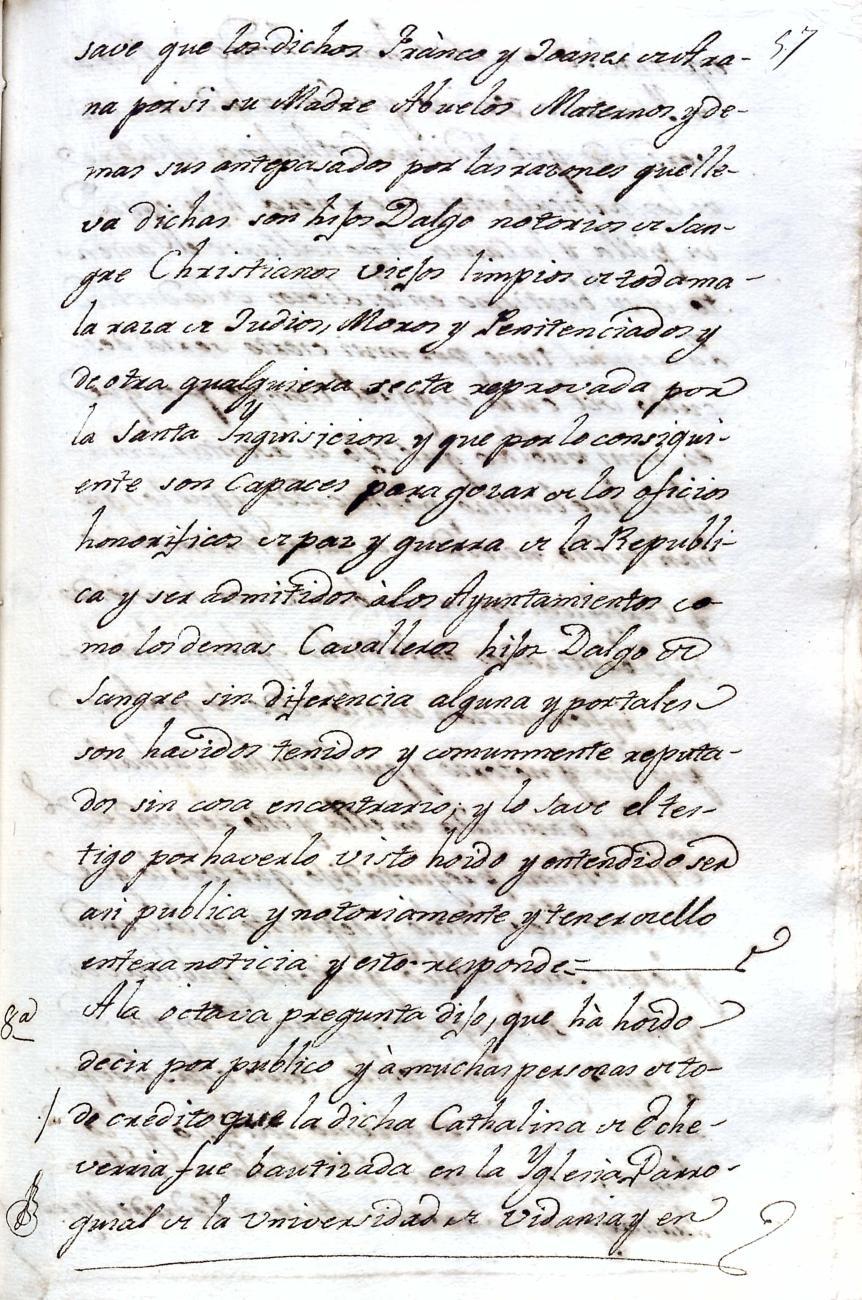 57
save que los dichos Franco y Joanes de Ara-
na por si su Madre Abuelos Maternos y de-
mas sus antepasados por las razones que lle-
va dichas son hijos Dalgo notorios de san-
gre Christianos viejos limpios de toda ma-
la raza de Judios, Moros y Penitenciados y
de otra qualquiera secta reprovada por
la Santa Ynquisicion y que por lo consigui-
ente son capaces para gozar de los oficios
honorificos de paz y guerra de la Republi-
ca y ser admitidos à los Ayuntamientos co-
mo los demas Cavalleros hijos Dalgo de
sangre sin diferencia alguna y por tales
son havidos tenidos y comunmente reputa-
dos sin cosa en contrario; y lo save el tes-
tigo por haverlo visto hoido y entendido ser
asi publica y notoriamente y tener de ello
entera noticia y esto responde=
8ª A la octava pregunta dijo, que hà hoido
decir por publico y à muchas personas de to-
do credito que la dicha Cathalina de Eche-
verria fue bautizada en la Yglesia Parro-
quial de la Universidad de Vidania y en